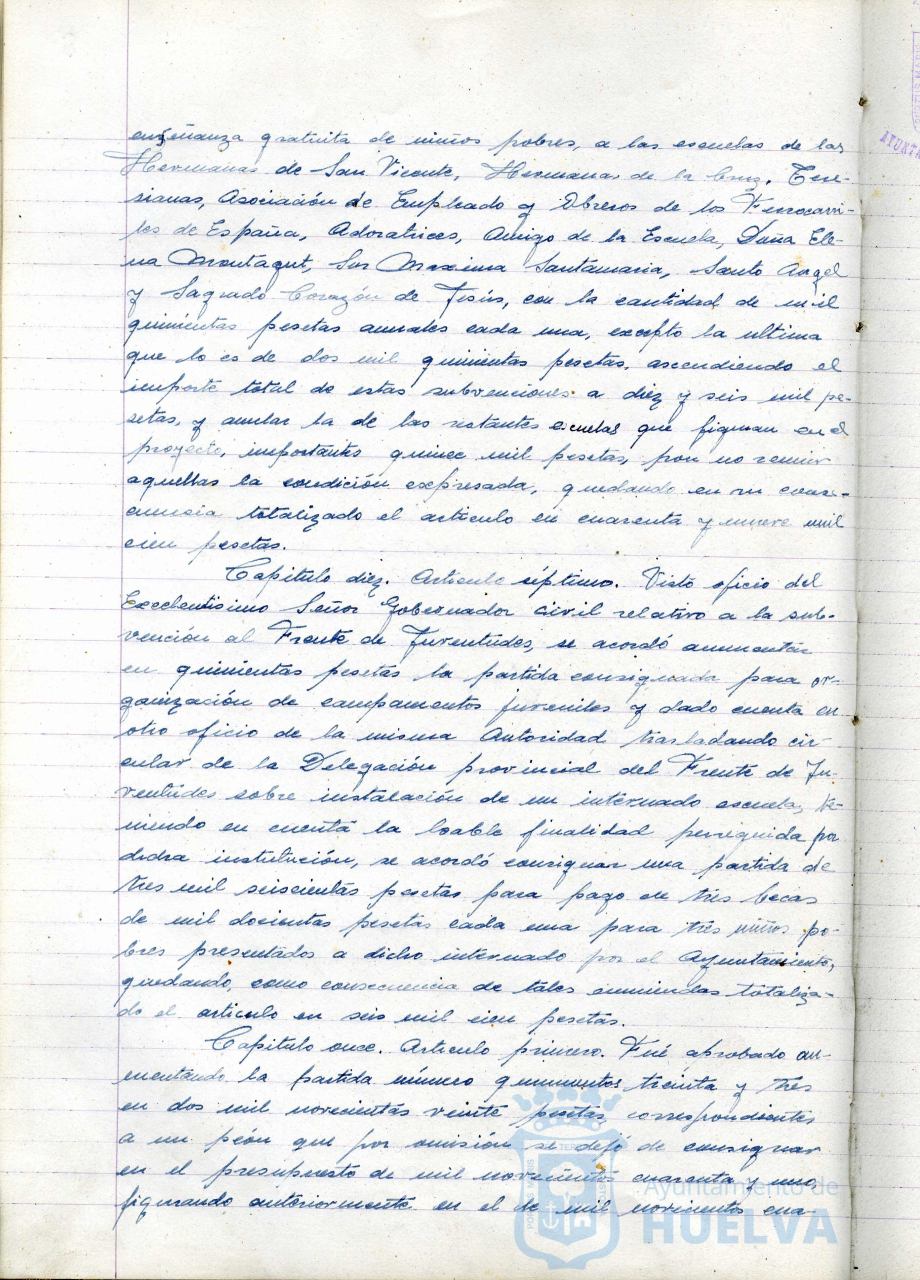 enseñanza gratuita de niños pobres, a las escuelas de las
Hermanas de San Vicente, Hermanas de la Cruz, Tere-
sianas, Asociación de Empleado y Obreros de los Ferrocarri-
les de España, Adoratrices, Amigo de la Escuela, Doña Ele-
na Montagut, Sor Maxima Santamaria, Santo Angel
y Sagrado Corazón de Jesús, con la cantidad de mil
quinientas pesetas anuales cada una, excepto la ultima
que lo es de dos mil quinientas pesetas, ascendiendo el
importe total de estas subvenciones a diez y seis mil pe-
setas, y anular la de las restantes escuelas que figuran en el
proyecto, importantes quince mil pesetas, por no reunir
aquellas la condición expresada, quedando en su conse-
cuencia totalizado el articulo en cuarenta y nueve mil
cien pesetas.
Capitulo diez. Articulo séptimo. Visto oficio del
Excelentisimo Señor Gobernador civil relativo a la sub-
vención al Frente de Juventudes, se acordó aumentar
en quinientas pesetas la partida consignada para or-
ganización de campamentos juveniles y dado cuenta en
otro oficio de la misma Autoridad trasladando cir-
cular de la Delegación provincial del Frente de Ju-
ventudes sobre instalación de un internado escuela, te-
niendo en cuenta la loable finalidad perseguida por
dicha institución, se acordó consignar una partida de
tres mil seiscientas pesetas para pago de tres becas
de mil docientas pesetas cada una para tres niños po-
bres presentados a dicho internado por el Ayuntamiento,
quedando, como consecuencia de tales enmiendas totaliza-
do el articulo en seis mil cien pesetas.
Capitulo once. Articulo primero. Fué aprobado au-
mentando la partida número quinientos treinta y tres
en dos mil novecientas veinte pesetas correspondientes
a un peón que por omisión se dejó de consignar
en el presupuesto de mil novecientos cuarenta y uno,
figurando anteriormente en el de mil novecientos cua-
Ayuntamiento de
HUELVA